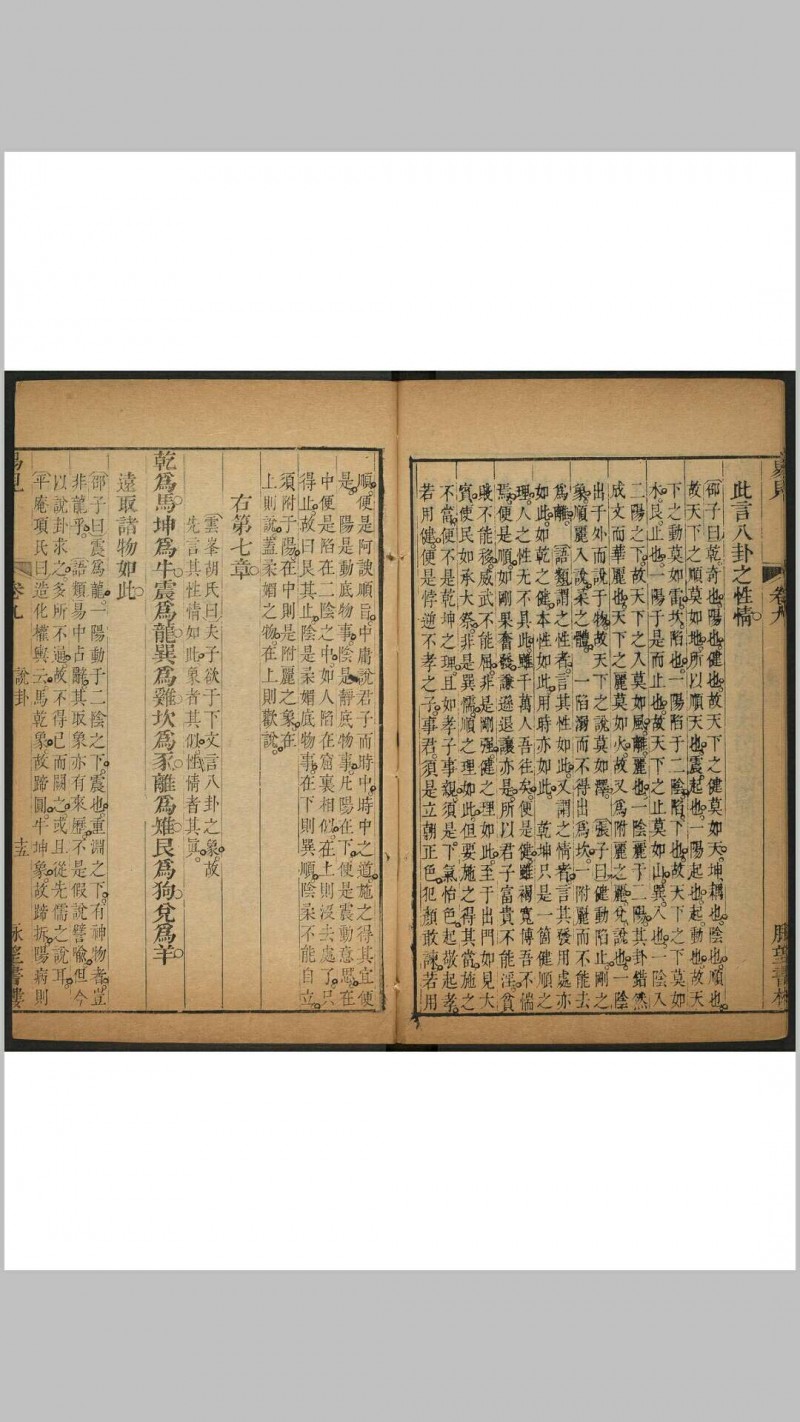 此言八卦之性情
邵子曰乾奇也陽也健也故天下之健莫如天坤耦也陰也順也
故天下之順莫如地所以順天也震起也一陽起也起動也故天
下之動莫如雷坎陷也一陽陷于二陰陷下也故天下之下莫如
水艮止也一陽于是而止也故天下之止莫如山巽入也一陰入
二陽之下故天下之入莫如風離麗也一陰麗于二陽其卦錯然
成文而華麗也天下之麗莫如火故又為附麗之麗兌說也一陰
出于外而說于物故天下之說莫如澤 張子曰健動陷止剛之
象順麗入說柔之體 一陷溺而不得出為坎一附麗而不能去
為離 語類謂之性者言其性如此又謂之情者言其發用處亦
如此如乾之健本性如此用時亦如此 乾坤只是一箇健順之
理人之性无不具此雖千萬人吾往矣便是健雖褐寬博吾不惴
焉便是順如剛果奮發謙遜退讓亦是所以君子富貴不能淫貧
賤不能移威武不能屈非是剛强健之理如此至于出門如見大
賓使民如承大祭非是巽懦順之理如此但要施之得其當施之
不當便不是乾坤之理且如孝子事親須是下氣怡色起敬起孝
若用健便是悖逆不孝之子事君須是立朝正色犯顏敢諫若用
順便是阿諛順旨中庸說君子而時中時中之道施之得其宜便
是 陽是動底物事陰是靜底物事凡陽在下便是震動意思在
中便是陷在二陰之中如人陷在窟裏相似在上則沒去處了只
得止故曰艮其止陰是柔媚底物事在下則巽順陰柔不能自立
須附于陽在中則是附麗之象在
上則說蓋柔媚之物在上則歡說
右第七章
雲峯胡氏曰夫子欲于下文言八卦之象故
先言其性情如此象者其似性情者其眞
乾爲馬坤爲牛震爲龍巽爲雞坎爲豕離爲雉艮爲狗兌爲羊
遠取諸物如此
邵子曰震爲龍一陽動于二陰之下震也重淵之下有神物者豈
非龍乎 語類易中占辭其取象亦有來歷不是假說譬喻但今
以說卦求之多所不通故不得已而闕之或且從先儒之說耳
平庵項氏曰造化權輿云馬乾象故蹄圓牛坤象故蹄拆陽病則
卷九 說卦 十五